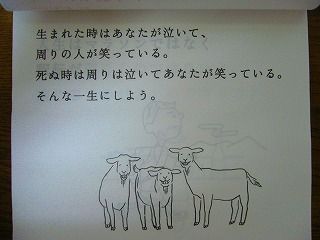 生まれた時はあなたが泣いて、
周りの人が笑っている。
死ぬ時は周りは泣いてあなたが笑っている。
そんな一生にしよう。